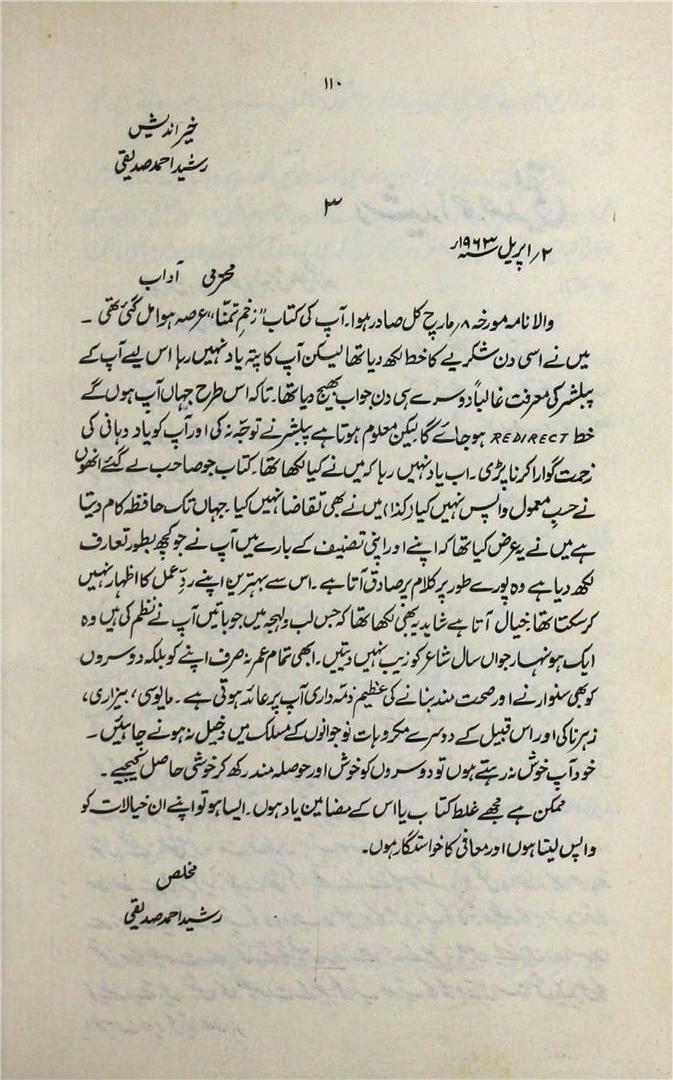 ۱۱۰
خیر اندیش
رشید احمد صدیقی
۳
۲؍ اپریل ۱۹۶۳ء
محترمی آداب
والا نامہ مورخہ ۸؍ مارچ کل صادر ہوا۔ آپ کی کتاب "زخمِ تمنّا" عرصہ ہوا مل گئی تھی ۔
میں نے اسی دن شکریے کا خط لکھ دیا تھا لیکن آپ کا پتہ یاد نہیں رہا اس لیے آپ کے
پبلشر کی معرفت غالباً دوسرے ہی دن جواب بھیج دیا تھا۔ تاکہ اس طرح جہاں آپ ہوں گے
خط REDIRECT ہو جائے گا لیکن معلوم ہوتا ہے پبلشر نے توجّہ نہ کی اور آپ کو یاد دہانی کی
زحمت گوارا کرنا پڑی۔ اب یاد نہیں رہا کہ میں نے کیا لکھا تھا۔ کتاب جو صاحب لے گئے انھوں
نے حسبِ معمول واپس نہیں کیا (کذا) میں نے بھی تقاضا نہیں کیا۔ جہاں تک حافظہ کام دیتا
ہے میں نے یہ عرض کیا تھا کہ اپنے اور اپنی تصنیف کے بارے میں آپ نے جو کچھ بطور تعارف
لکھ دیا ہے وہ پورے طور پر کلام پر صادق آتا ہے ۔ اس سے بہتر میں اپنے ردِّ عمل کا اظہار نہیں
کر سکتا تھا۔ خیال آتا ہے شاید یہ بھی لکھا تھا کہ جس لب و لہجہ میں جو باتیں آپ نے نظم کی ہیں وہ
ایک ہونہار جواں سال شاعر کو زیب نہیں دیتیں۔ ابھی تمام عمر نہ صرف اپنے کو بلکہ دوسروں
کو بھی سنوارنے اور صحت مند بنانے کی عظیم ذمّہ داری آپ پر عائد ہوتی ہے ۔ مایوسی، بیزاری،
زہرناکی اور اس قبیل کے دوسرے مکروہات نوجوانوں کے مسلک میں دخیل نہ ہونے چاہئیں ۔
خود آپ خوش نہ رہتے ہوں تو دوسروں کو خوش اور حوصلہ مند رکھ کر خوشی حاصل کیجیے ۔
ممکن ہے مجھے غلط کتاب یا اس کے مضامین یاد ہوں۔ ایسا ہو تو اپنے ان خیالات کو
واپس لیتا ہوں اور معافی کا خواستگار ہوں۔
مخلص
رشید احمد صدیقی